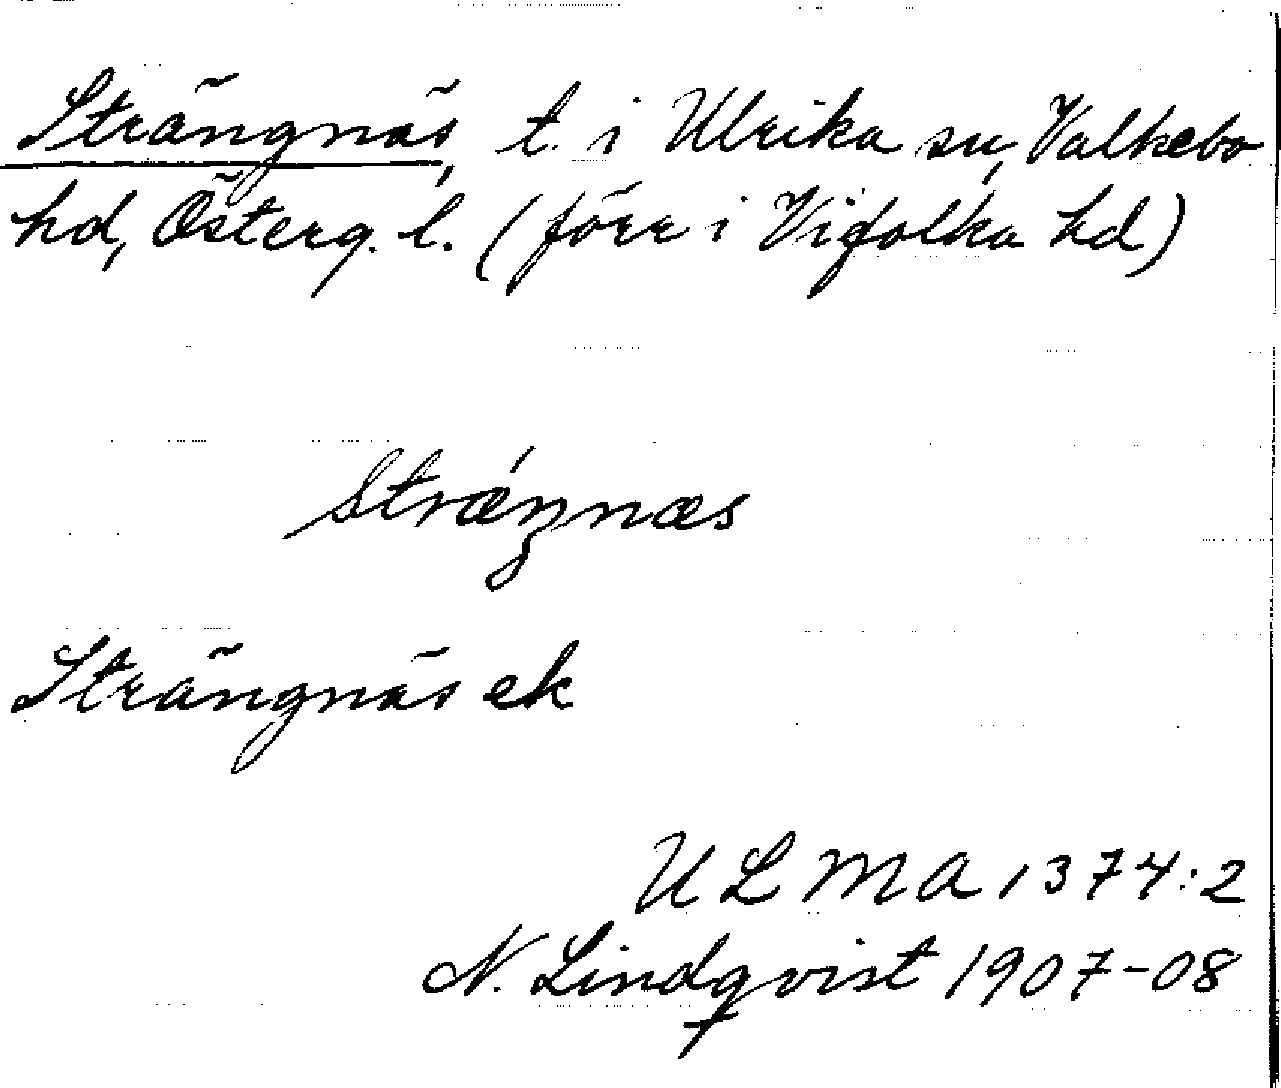 Strängnäs, t. i Ulrika sn, Valkebo
hd, Österg. l. (förr i Vifolka hd)
Strǽŋnæs
Strängnäs ek
ULMA 1374:2
N. Lindqvist 1907-08